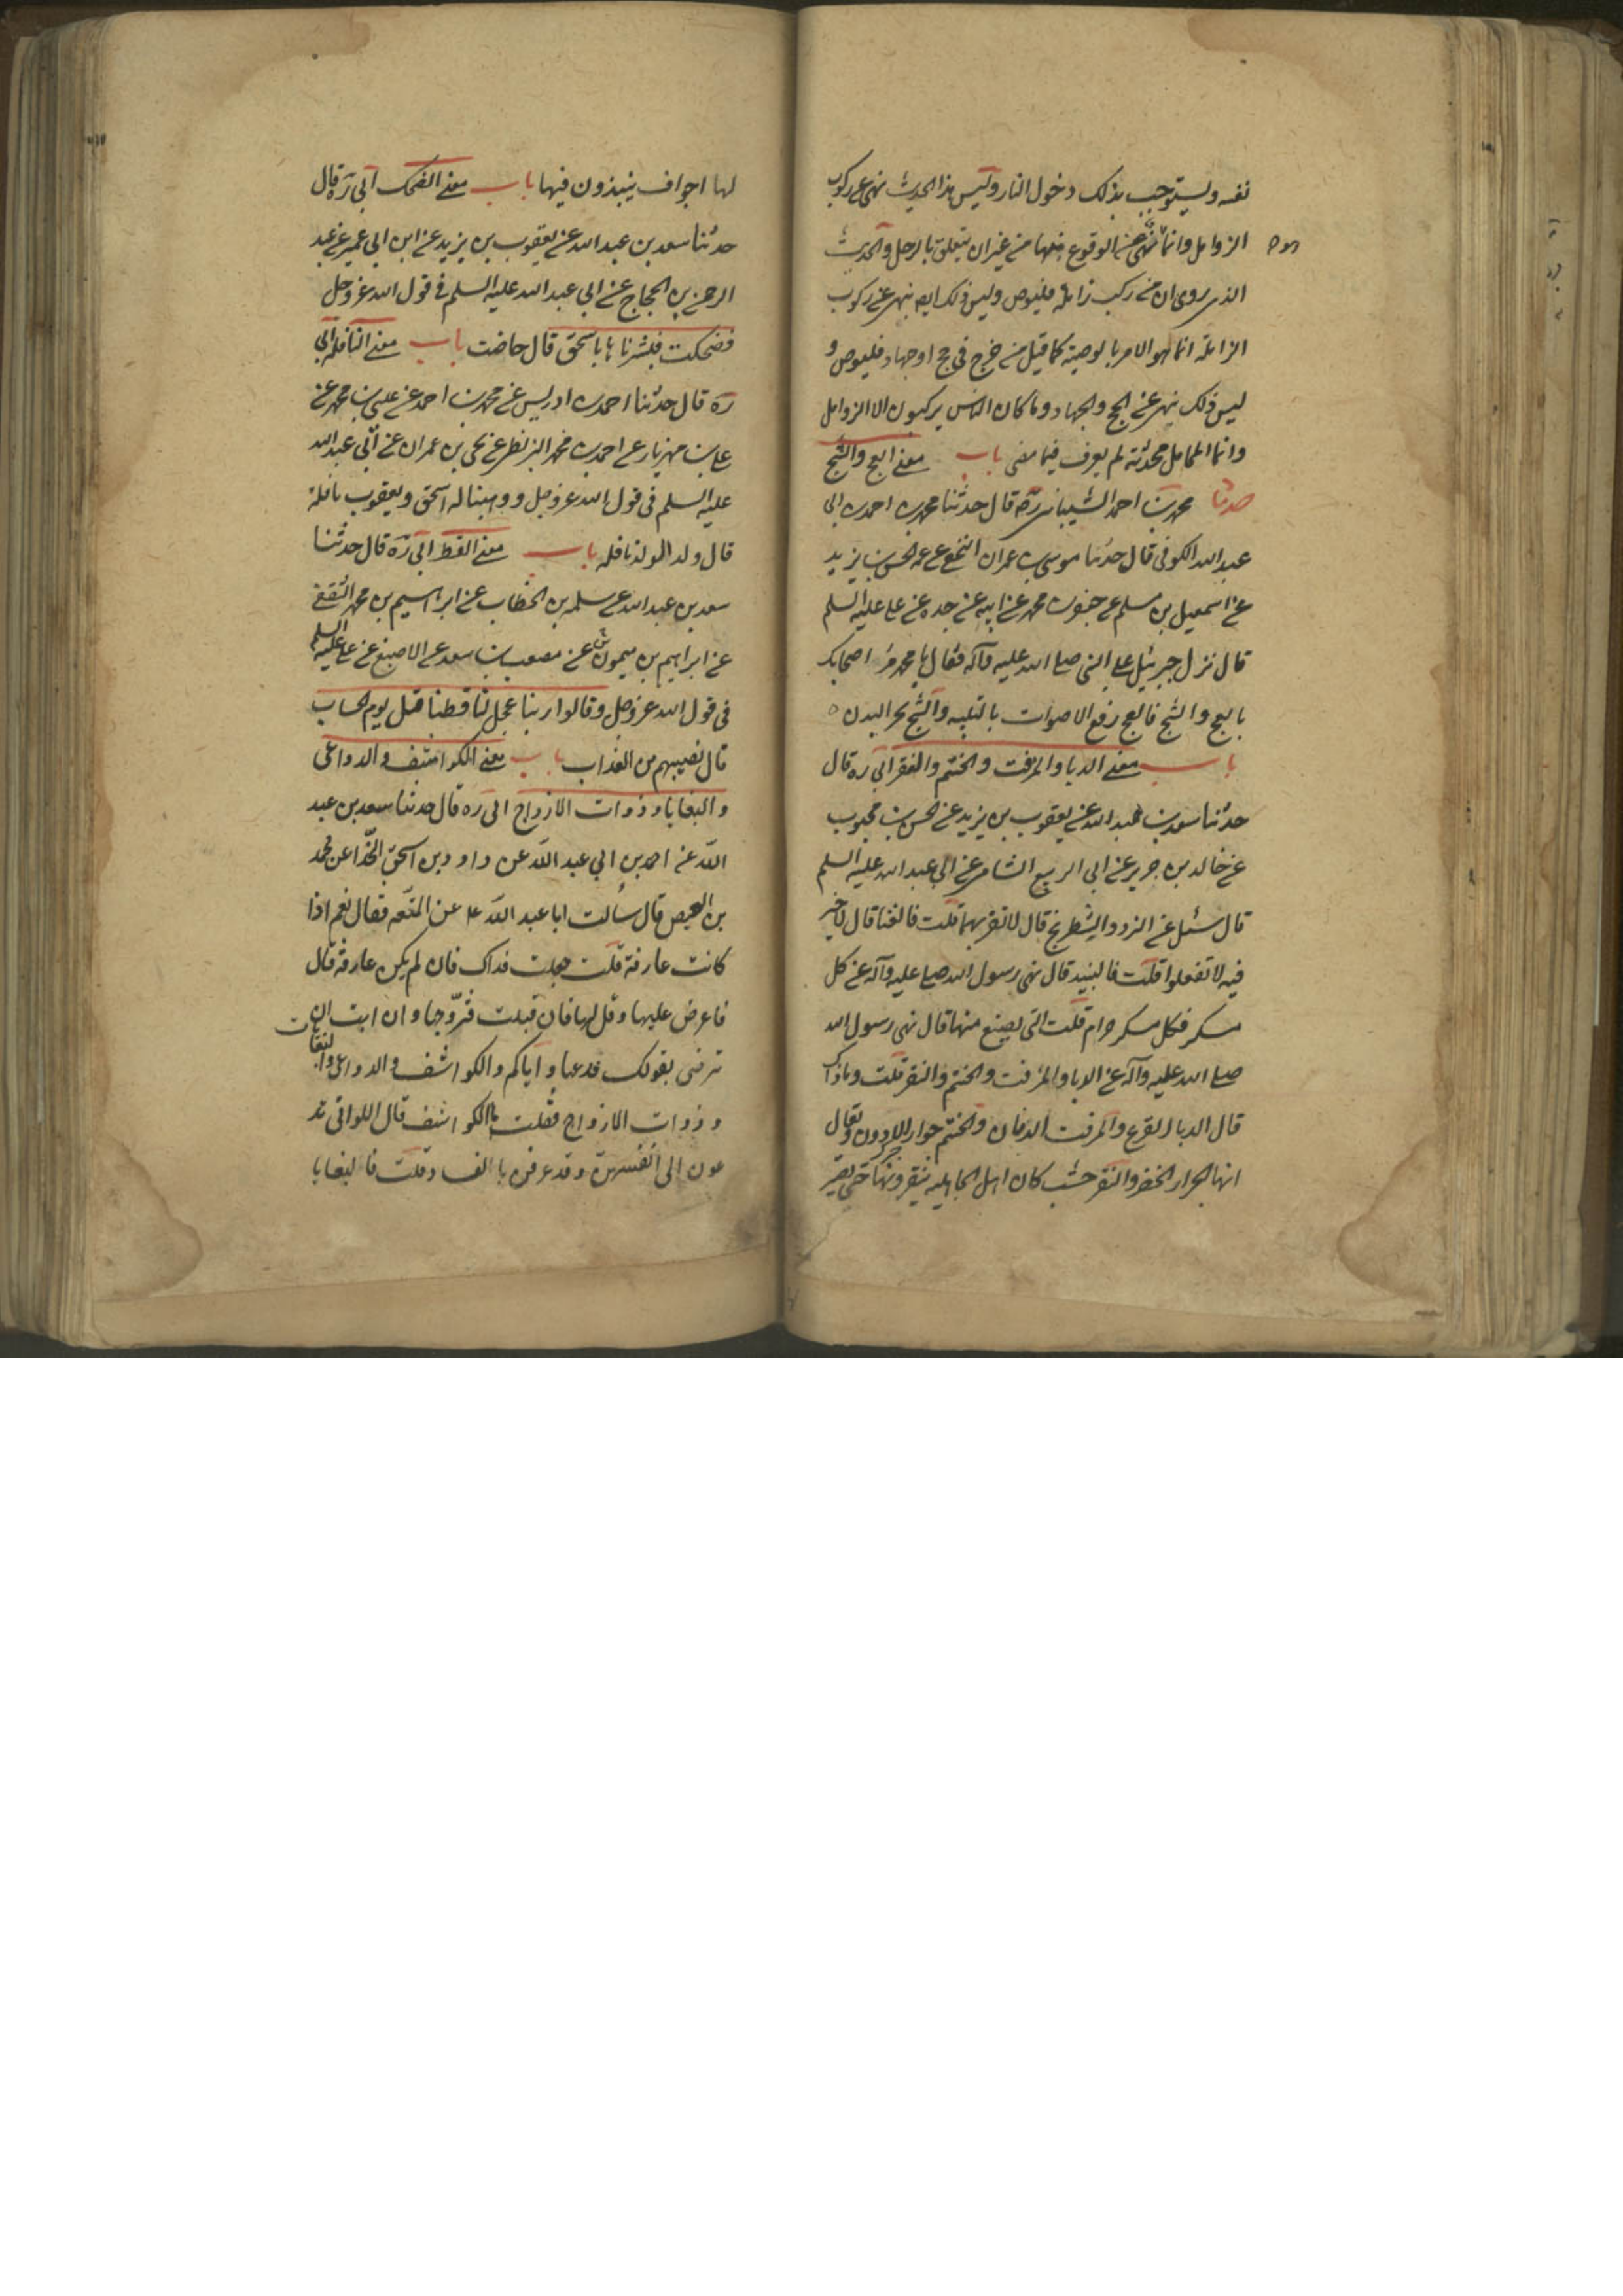 نفسه ويستوجب بذلك دخول النار وليس هذا الحديث نهى عن ركوب
الزوامل وانما نهى عن الوقوع منها من غير ان يتعلق بالرحل والحديث
الذى روى ان من ركب زاملة فليوص وليس ذلك ايضا بنهى عن ركوب
الزاملة انما هو الامر بالوصية كما قيل من خرج فى حج او جهاد فليوص و
ليس ذلك بنهى عن الحج والجهاد وما كان الناس يركبون الا الزوامل
وانما المحامل محدثة لم يعرف فيما مضى باب معنى العج والثج
حدثنا محمد بن احمد الشيبانى رضه قال حدثنا محمد بن احمد بن ابى
عبد الله الكوفى قال حدثنا موسى بن عمران النخعى عن عمه الحسين بن يزيد
عن اسمعيل بن مسلم عن جعفر بن محمد عن ابيه عن جده عن على عليه السلم
قال نزل جبرئيل على النبى صلى الله عليه وآله فقال يا محمد مر اصحابك
بالعج والثج فالعج رفع الاصوات بالتلبيه والثج نحر البدن
باب معنى الدبا والمزفت والحنتم والنقير ابى ره قال
حدثنا سعد بن عبد الله عن يعقوب بن يزيد عن الحسن بن محبوب
عن خالد بن جرير عن ابى الربيع الشامى عن ابى عبد الله عليه السلم
قال سئل عن النرد والشطرنج قال لا تقربهما قلت فالغنا قال لا خير
فيه لا تفعلوا قلت فالنبيذ قال نهى رسول الله صلى عليه وآله عن كل
مسكر فكل مسكر حرام قلت التى يصنع منها قال نهى رسول الله
صلى الله عليه وآله عن الدبا والمزفت والحنتم والنقير قلت وما ذاك
قال الدبا القرع والمزفت الدنان والحنتم جرار الاردن ويقال
انها الجرار الخضر والنقير خشب كان اهل الجاهليه ينقرونها حتى يصير
لها اجواف ينبذون فيها باب معنى الضحك ابى ره قال
حدثنا سعد بن عبد الله عن يعقوب بن يزيد عن ابن ابى عمير عن عبد
الرحمن بن الحجاج عن ابى عبد الله عليه السلم فى قول الله عز وجل
فضحكت فبشرناها باسحق قال حاضت باب معنى النافله ابى
ره قال حدثنا احمد بن ادريس عن محمد بن احمد عن على بن محمد عن
على بن مهزيار عن احمد بن محمد البزنطى عن يحى بن عمران عن ابى عبد الله
عليه السلم فى قول الله عز وجل ووهبنا له اسحق ويعقوب نافلة
قال ولد الولد نافله باب معنى القط ابى ره قال حدثنا
سعد بن عبد الله عن سلمه بن الخطاب عن ابراهيم بن محمد الثقفى
عن ابراهيم بن ميمون عن مصعب بن سعد عن الاصبغ عن على عليه السلم
فى قول الله عز وجل وقالوا ربنا عجل لنا قطنا قبل يوم الحساب
قال نصيبهم من العذاب باب معنى الكواشف والدواعى
والبغايا وذوات الازواج ابى ره قال حدثنا سعد بن عبد
الله عن احمد بن ابى عبد الله عن داود بن اسحق الحذا عن محمد
بن العيص قال سألت ابا عبد الله ع عن المتعه فقال نعم اذا
كانت عارفة قلت جعلت فداك فان لم يكن عارفة قال
فاعرض عليها وقل لها فان قبلت فتزوجها وان ابت ان
ترضى بقولك فدعها واياكم والكواشف والدواعى والبغايا
وذوات الازواج فقلت ما الكواشف قال اللواتى تد
عون الى انفسهن وقد عرفن بالفساد قلت فالبغايا